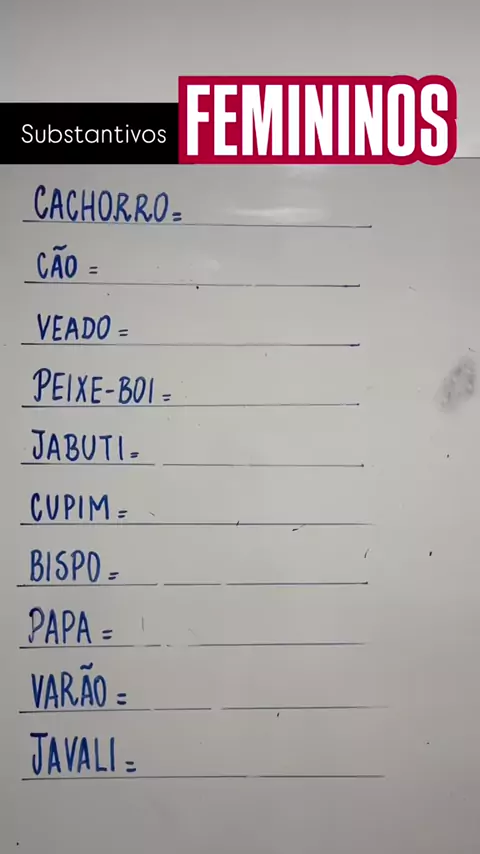 Substantivos FEMININOS
CACHORRO =
CÃO =
VEADO =
PEIXE-BOI =
JABUTI =
CUPIM =
BISPO =
PAPA =
VARÃO =
JAVALI =